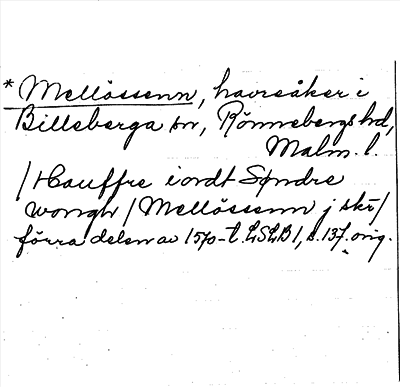 * Mellåssenn, havreåker i
Billeberga sn, Rönnebergs hd,
Malm. l.
/Hauffre iordt Søndre
wongh/Mellåssenn j skr/
förra delen av 1570-t. LSLB 1, s. 137. orig.